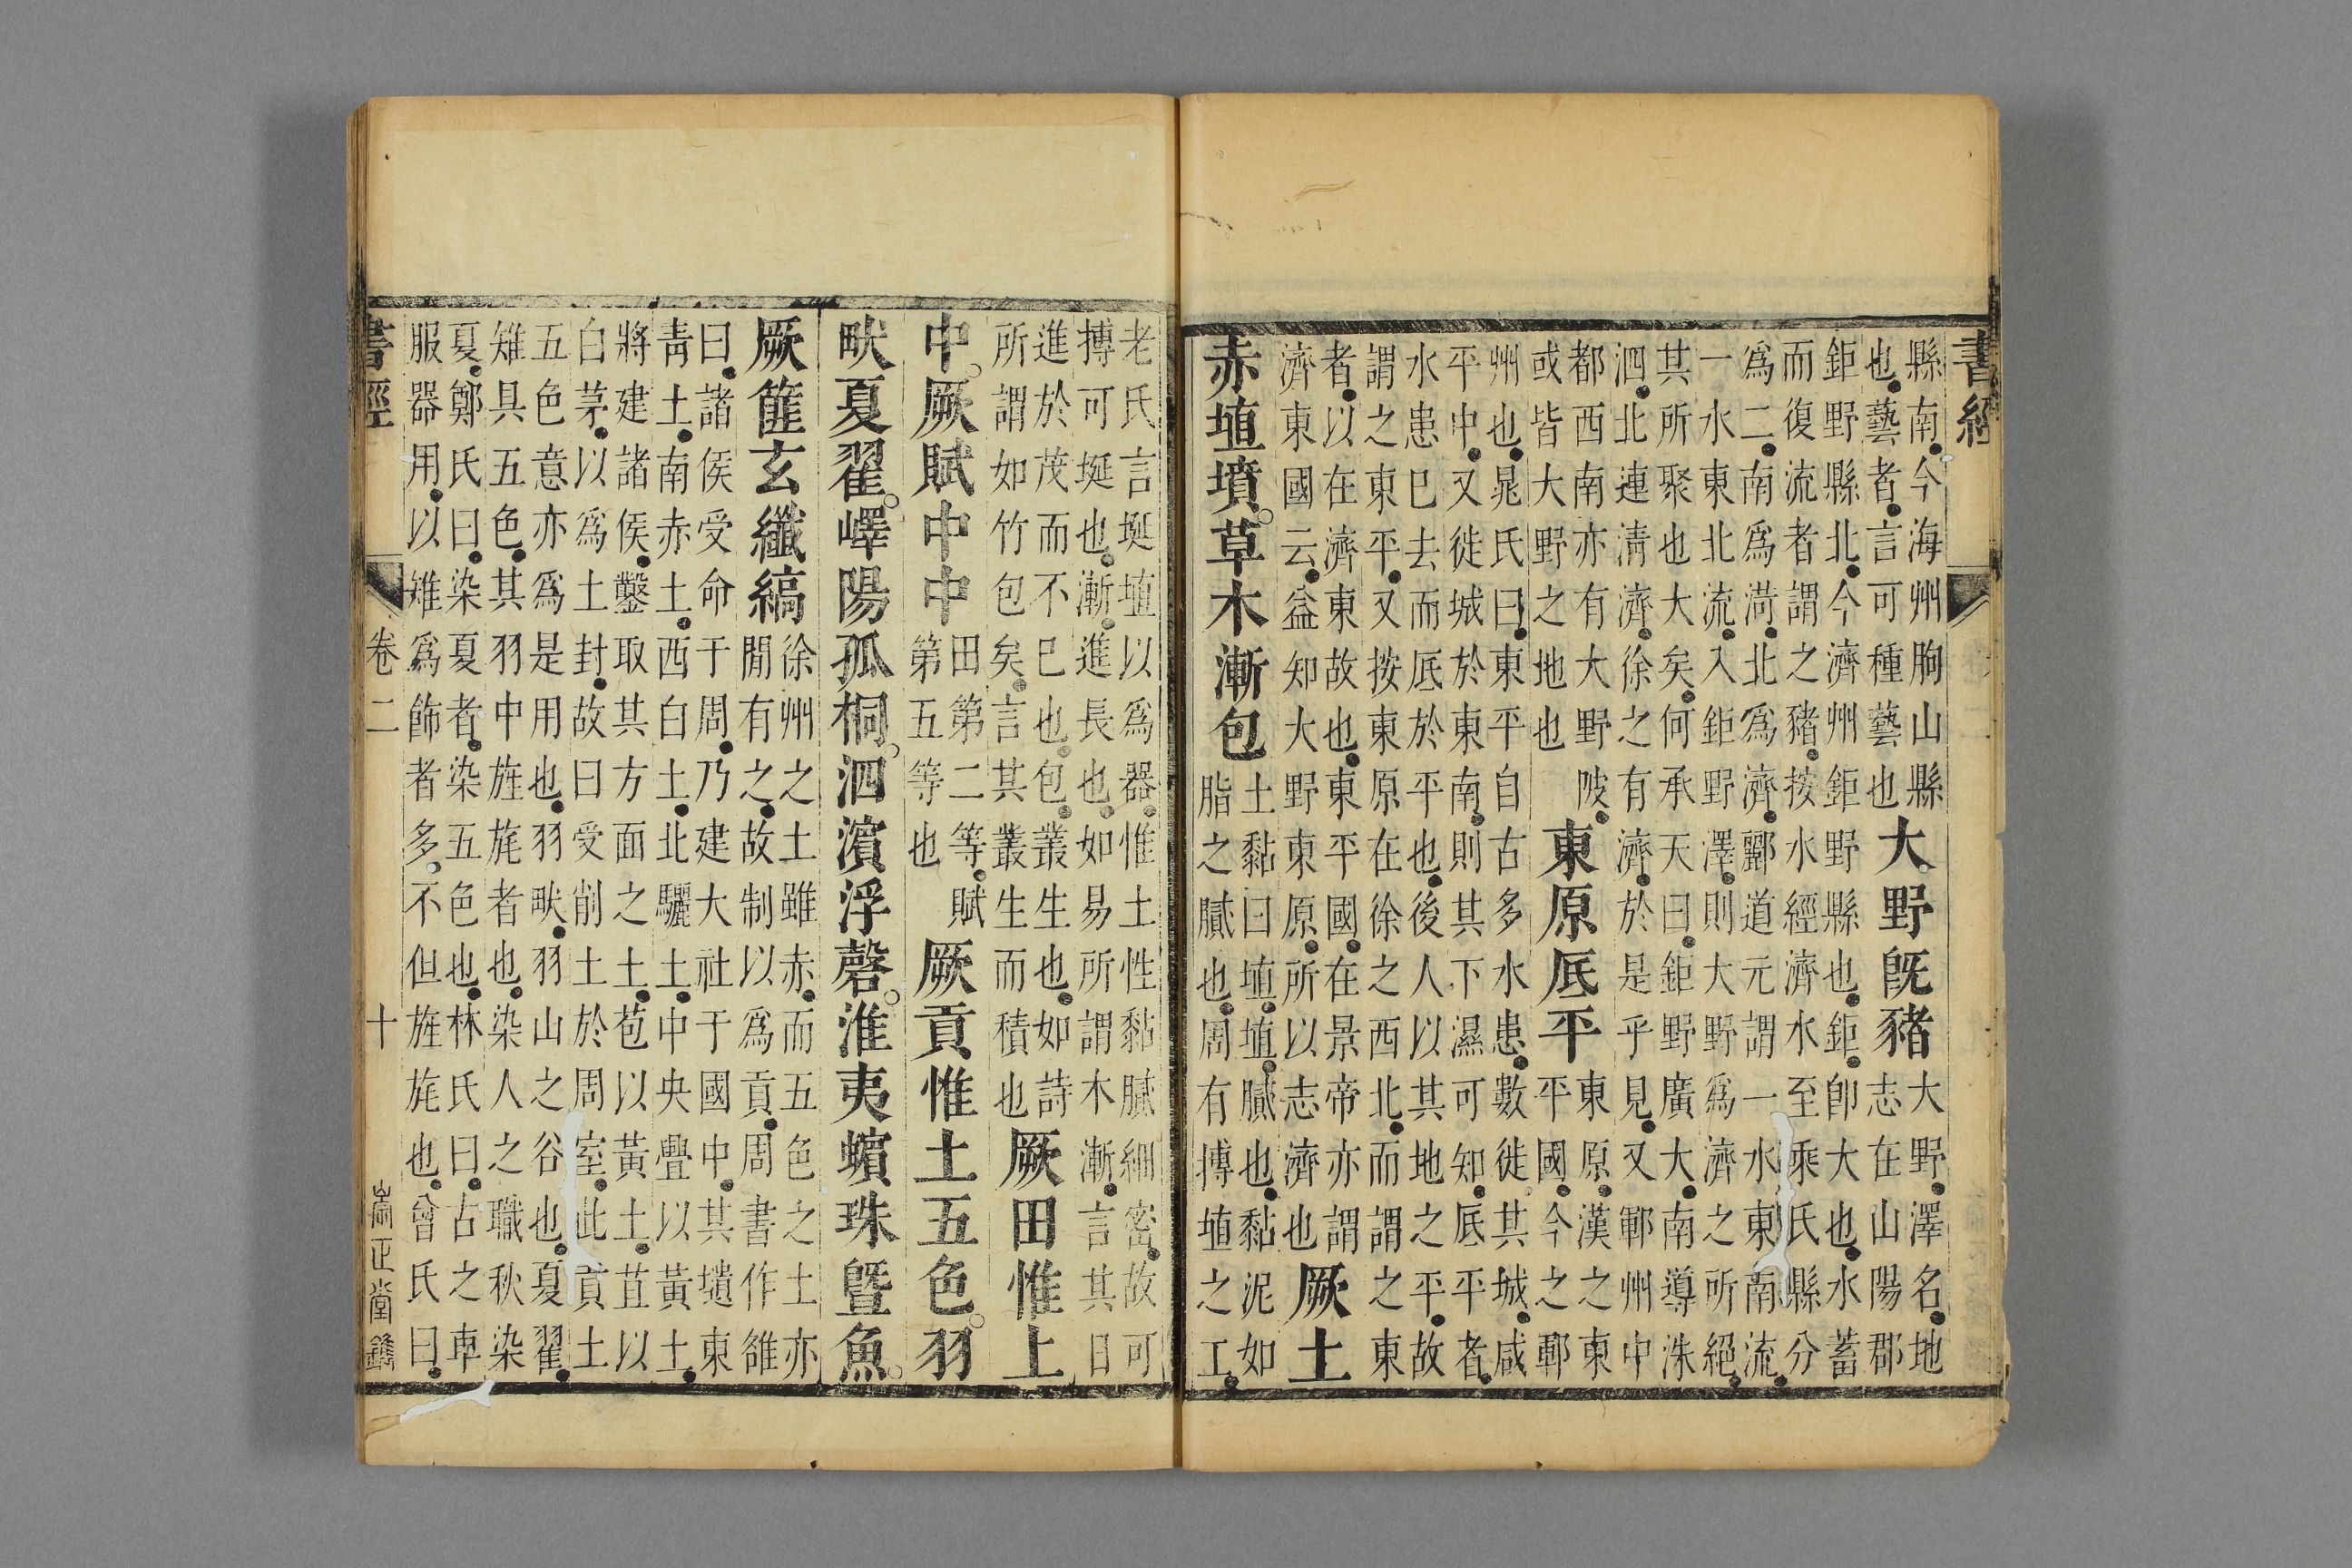 書經
縣南今海州朐山縣
也藝者言可種藝也
大野旣豬
大野澤名地
志在山陽郡
鉅野縣北今濟州鉅野縣也鉅卽大也水蓄
而復流者謂之豬按水經濟水至乘氏縣分
爲二南爲菏北爲濟酈道元謂一水東南流
一水東北流入鉅野澤則大野爲濟之所絕
其所聚也大矣何承天曰鉅野廣大南導洙
泗北連淸濟徐之有濟於是乎見又鄆州中
都西南亦有大野陂
或皆大野之地也
東原底平
東原漢之東
平國今之鄆
州也晁氏曰東平自古多水患數徙其城咸
平中又徙城於東南則其下濕可知底平者
水患已去而底於平也後人以其地之平故
謂之東平又按東原在徐之西北而謂之東
者以在濟東故也東平國在景帝亦謂
濟東國云益知大野東原所以志濟也
厥土
赤埴墳草木漸包
土黏曰埴埴膩也黏泥如
脂之膩也周有搏埴之工
老氏言埏埴以爲器惟土性黏膩細密故可
搏可埏也漸進長也如易所謂木漸言其日
進於茂而不已也包叢生也如詩
所謂如竹包矣言其叢生而積也
厥田惟上
中厥賦中中
田第二等賦
第五等也
厥貢惟土五色羽
畎夏翟嶧陽孤桐泗濱浮磬淮夷蠙珠曁魚
厥篚玄纖縞
徐州之土雖赤而五色之土亦
閒有之故制以爲貢周書作雒
曰諸侯受命于周乃建大社于國中其壝東
靑土南赤土西白土北驪土中央疊以黃土
將建諸侯鑿取其方面之土苞以黃土苴以
白茅以爲土封故曰受削土於周室此貢土
五色意亦爲是用也羽畎羽山之谷也夏翟
雉具五色其羽中旌旄者也染人之職秋染
夏鄭氏曰染夏者染五色也林氏曰古之車
服器用以雉爲飾者多不但旌旄也曾氏曰
書經 卷二 十 正堂鐫